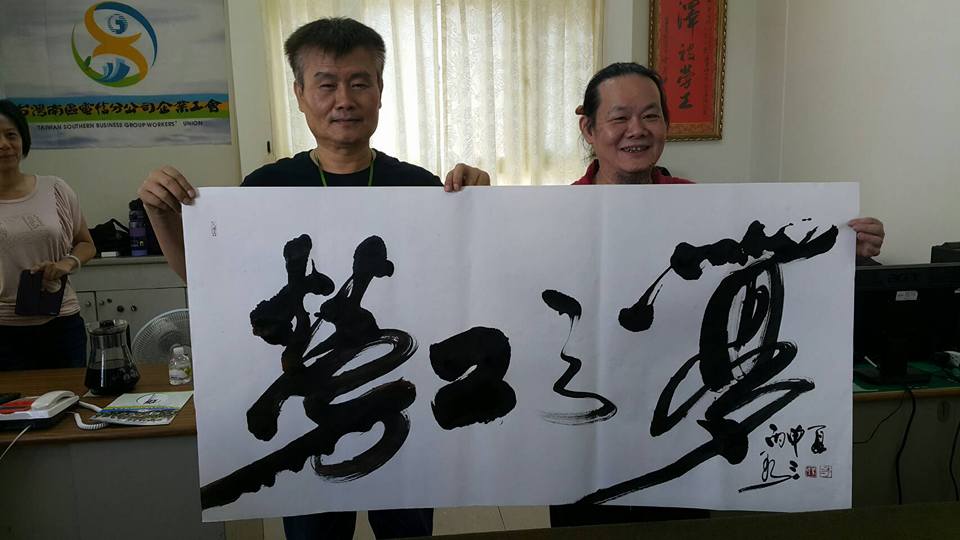 台灣南區電信分公司企業工會
TAIWAN SOUTHERN BUSINESS GROUP WORKERS' UNION
澤被勞工
勞工之
丙申夏